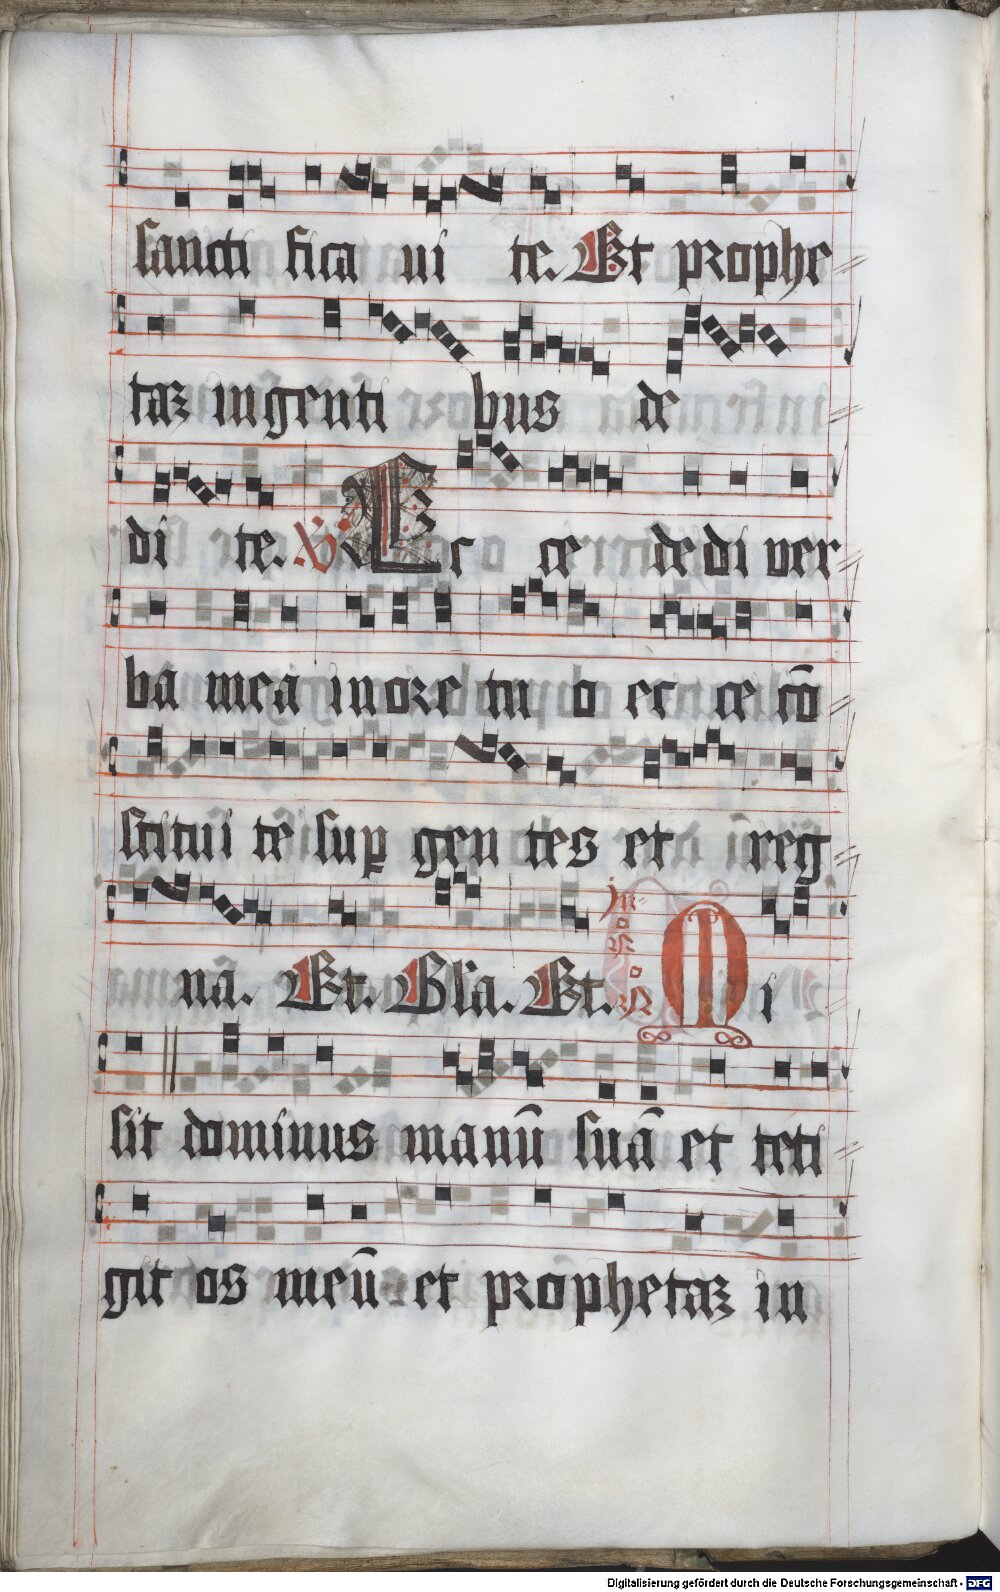 sancti fica ui te. Et prophe
taʒ in genti bus de
di te. V Ec ce de di ver
ba mea in ore tu o ec ce cō
stitui te suꝑ gen tes et reg
na. Et. Gl̓a. Et. In .iij. No. a Mi
sit dominus manū suā et teti
git os meū et prophetaʒ in
Digitalisierung gefördert durch die Deutsche Forschungsgemeinschaft - DFG